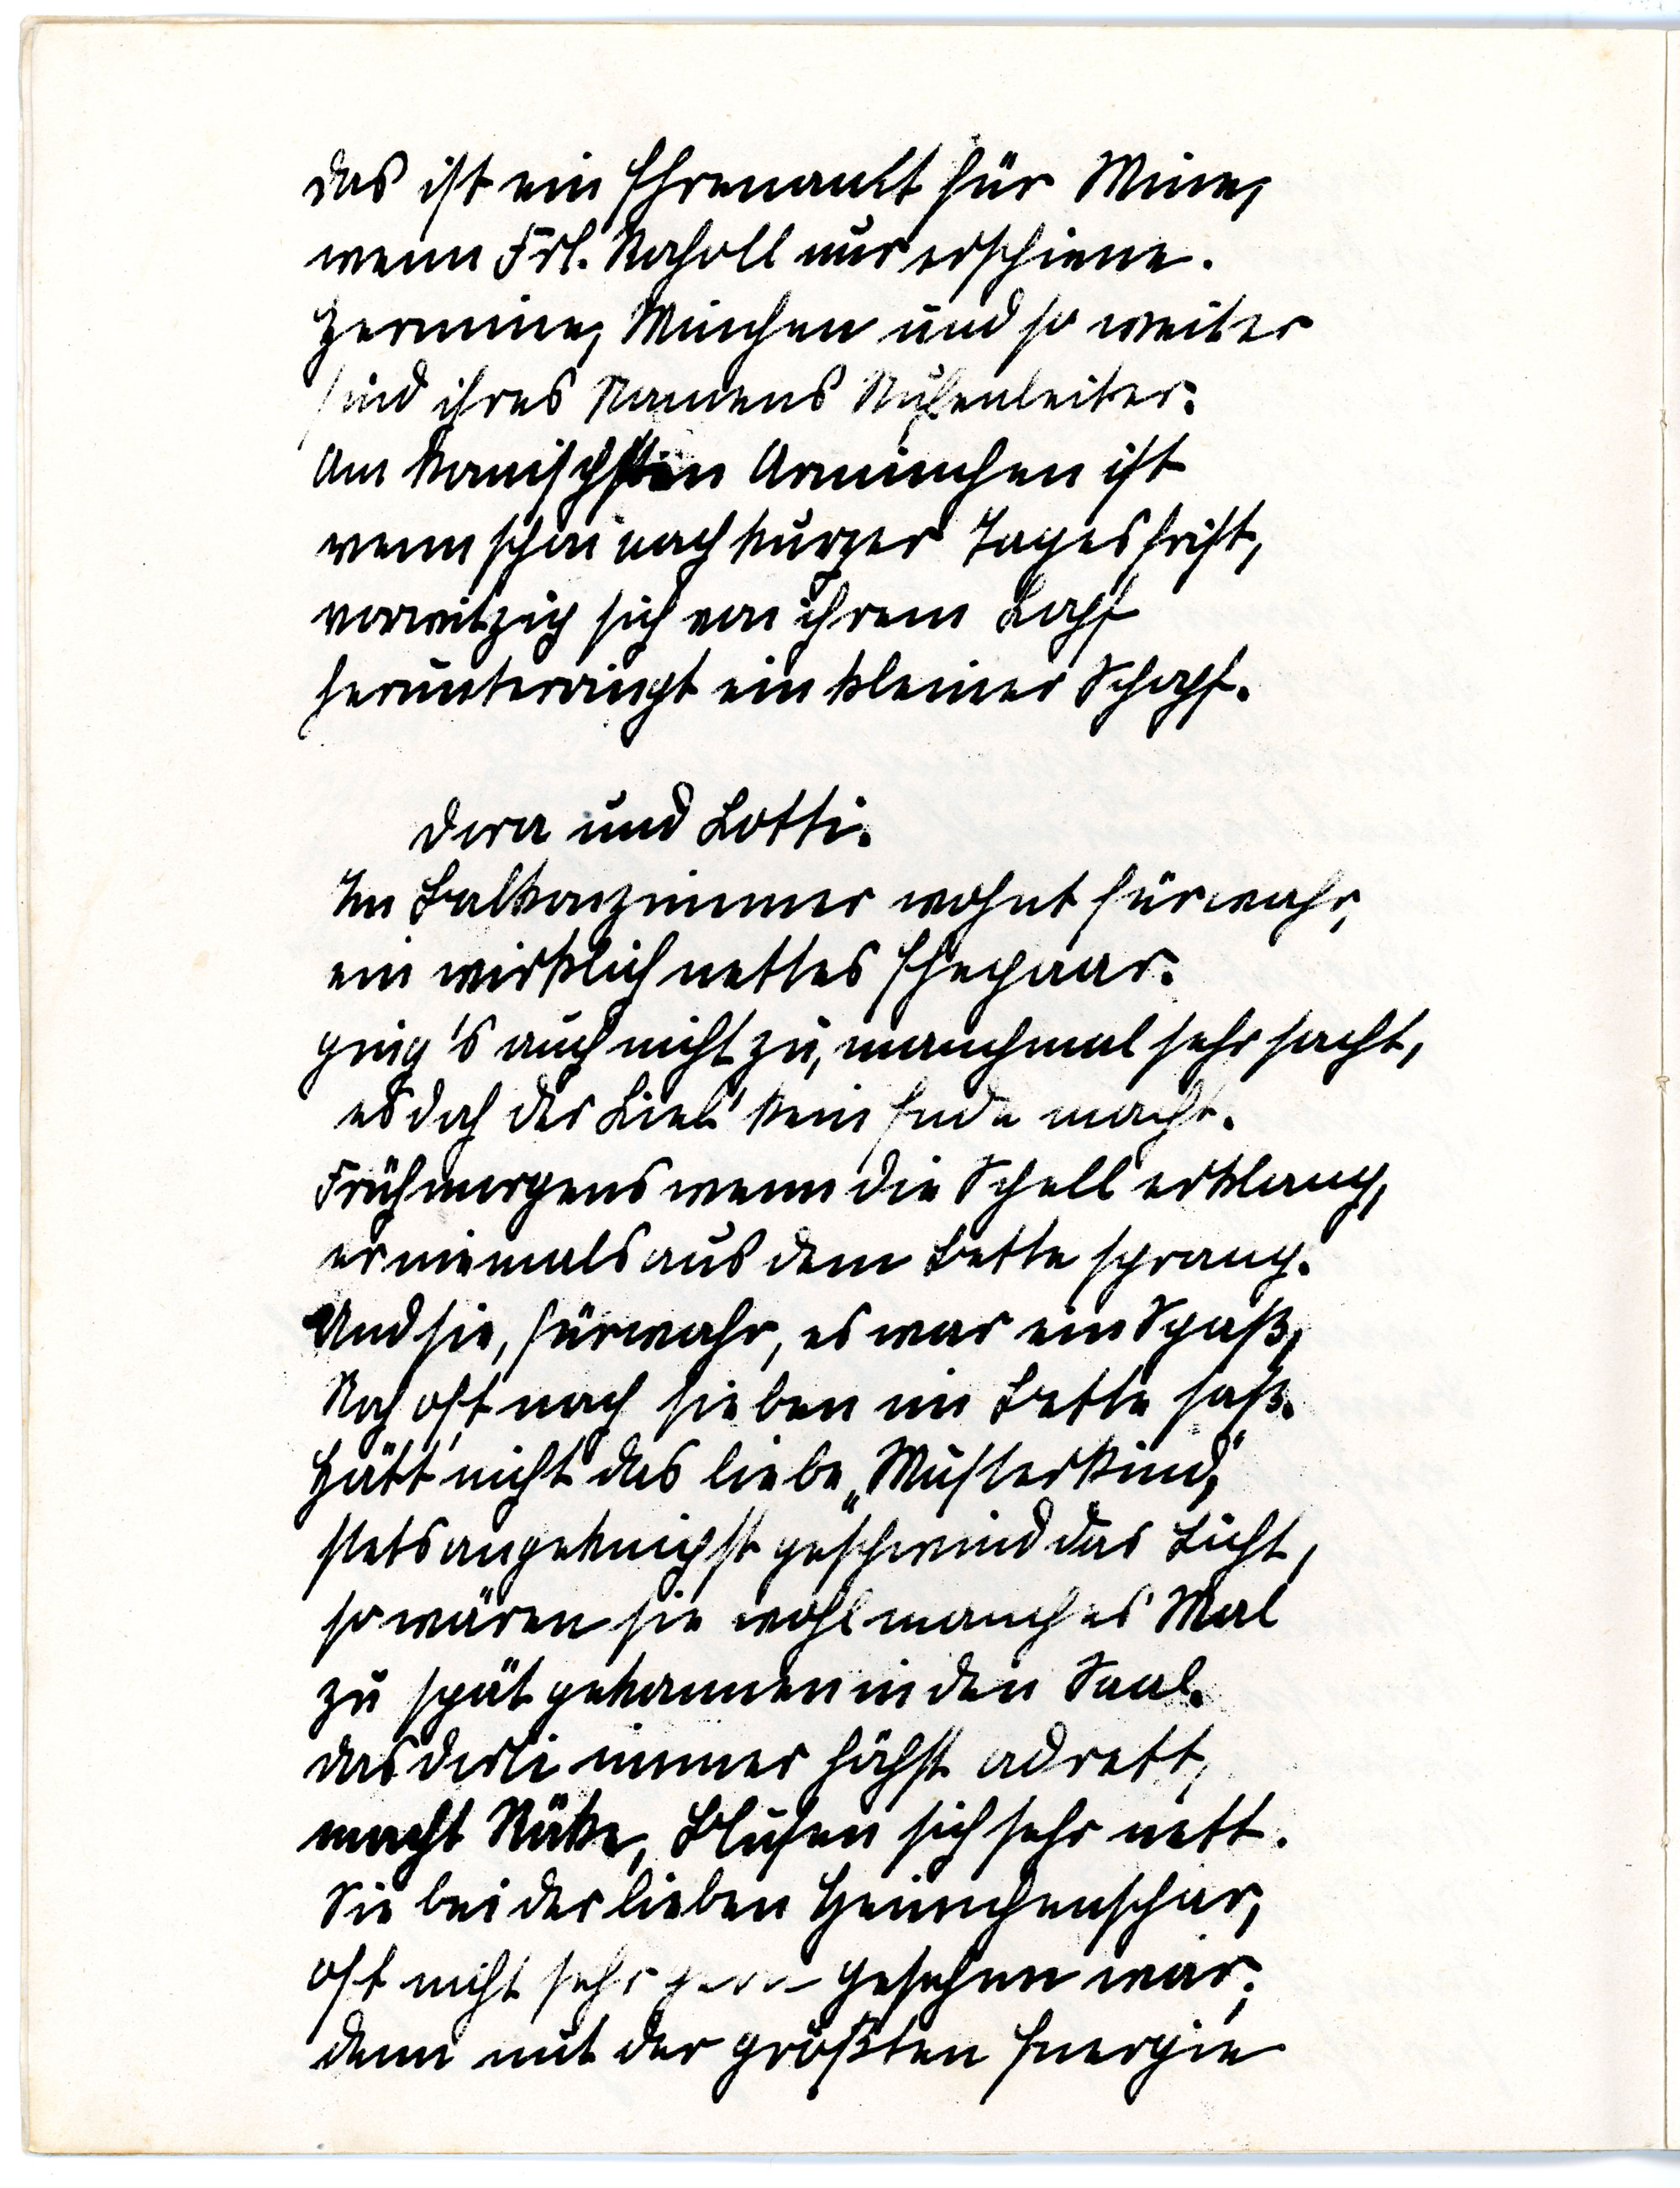 Das ist ein Ehrenamt für Mine,
wenn Frl. Nacholl nur erschiene.
Hermine, Minchen und so weiter
sind ihres Namens Stufenleiter.
Am komischsten Arminchen ist
wenn schon nach kurzer Tagesfrist,
vorwitzig sich von ihrem Kopf
herunterringt ein kleiner Schopf.
Dora und Lotti.
Im Balkonzimmer wohnt fürwahr,
ein wirklich nettes Ehepaar.
ging's auch nicht zu, manchmal sehr sacht,
es doch der Lieb' kein Ende macht.
Frühmorgens wenn die Schell erklang,
er niemals aus dem Bette sprang.
Und sie, fürwahr, es war ein Spaß,
Noch oft nach sieben im Bette saß.
Hätt' nicht das liebe „Musterkind,"
stets angeknipst geschwind das Licht,
so wären sie wohl manches Mal
zu spät gekommen in den Saal.
Das Dorli immer höchst adrett,
macht Röcke, Blusen sich sehr nett.
Sie bei der lieben Heimchenschar,
oft nicht sehr gern gesehen war;
denn mit der größten Energie